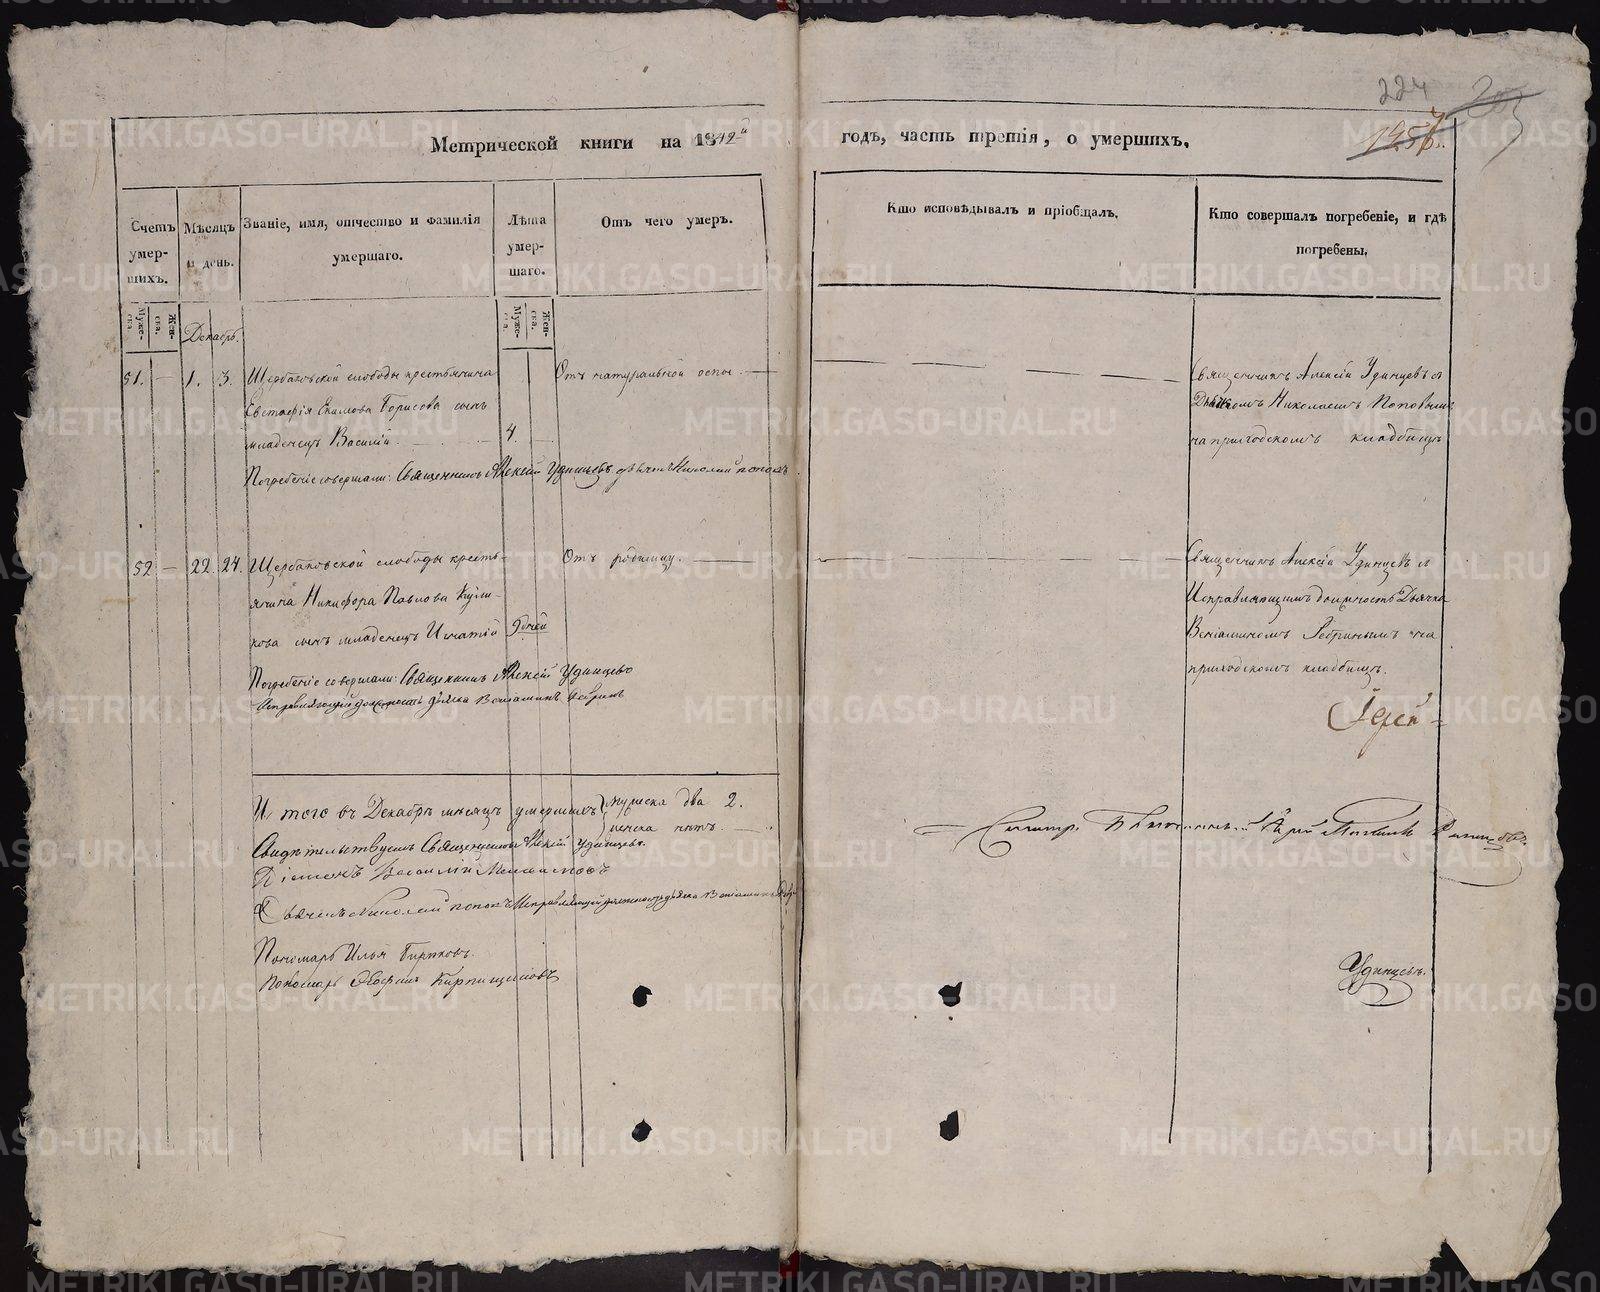 224
205
Метрической книги на 1842й годъ, часть третія, о умершихъ.
Счетъ умерших.
Мѣсяцъ и день.
Званіе, имя, отчество и фамилія умершаго.
Лѣта умершаго.
Отъ чего умеръ.
Кто исповѣдывалъ и пріобщалъ.
Кто совершалъ погребеніе, и гдѣ погребены.
Мужеска. Женска.
Декабрь.
Мужеска. Женска.
51. — 1. 3. Щербаковской слободы крестьянина
Евстафія Екимова Борисова сынъ
младенецъ Василій. 4. —
Отъ натуральной оспы. —
Священникъ Алексій Удинцевъ съ
Дьячкомъ Николаемъ Поповымъ
на приходскомъ кладбищѣ
Погребеніе совершали: Священникъ Алексій Удинцевъ дьячекъ Николай Поповъ
52 — 22. 24. Щербаковской слободы кресть-
янина Никифора Павлова Кули-
кова сынъ младенецъ Игнатій 9 дней
Отъ родимцу. —
Священникъ Алексій Удинцевъ съ
Исправляющимъ должность Дьячка
Веніаминомъ Ребринымъ на
приходскомъ кладбищѣ.
Погребеніе совершали: Священникъ Алексій Удинцевъ
Исправляющій должность дьячка Веніаминъ Ребринъ
Іерей
И того въ Декабрѣ мѣсяцѣ умершихъ мужеска два 2.
женска нѣтъ. —
Свидѣтельствуемъ Священникъ Алексій Удинцевъ.
Діаконъ Василій
Дьячекъ Николай Поповъ Исправляющій должность дьячка Веніаминъ
Пономарь Илья Бирюковъ.
Пономарь Кирпищиковъ
Удинцевъ.